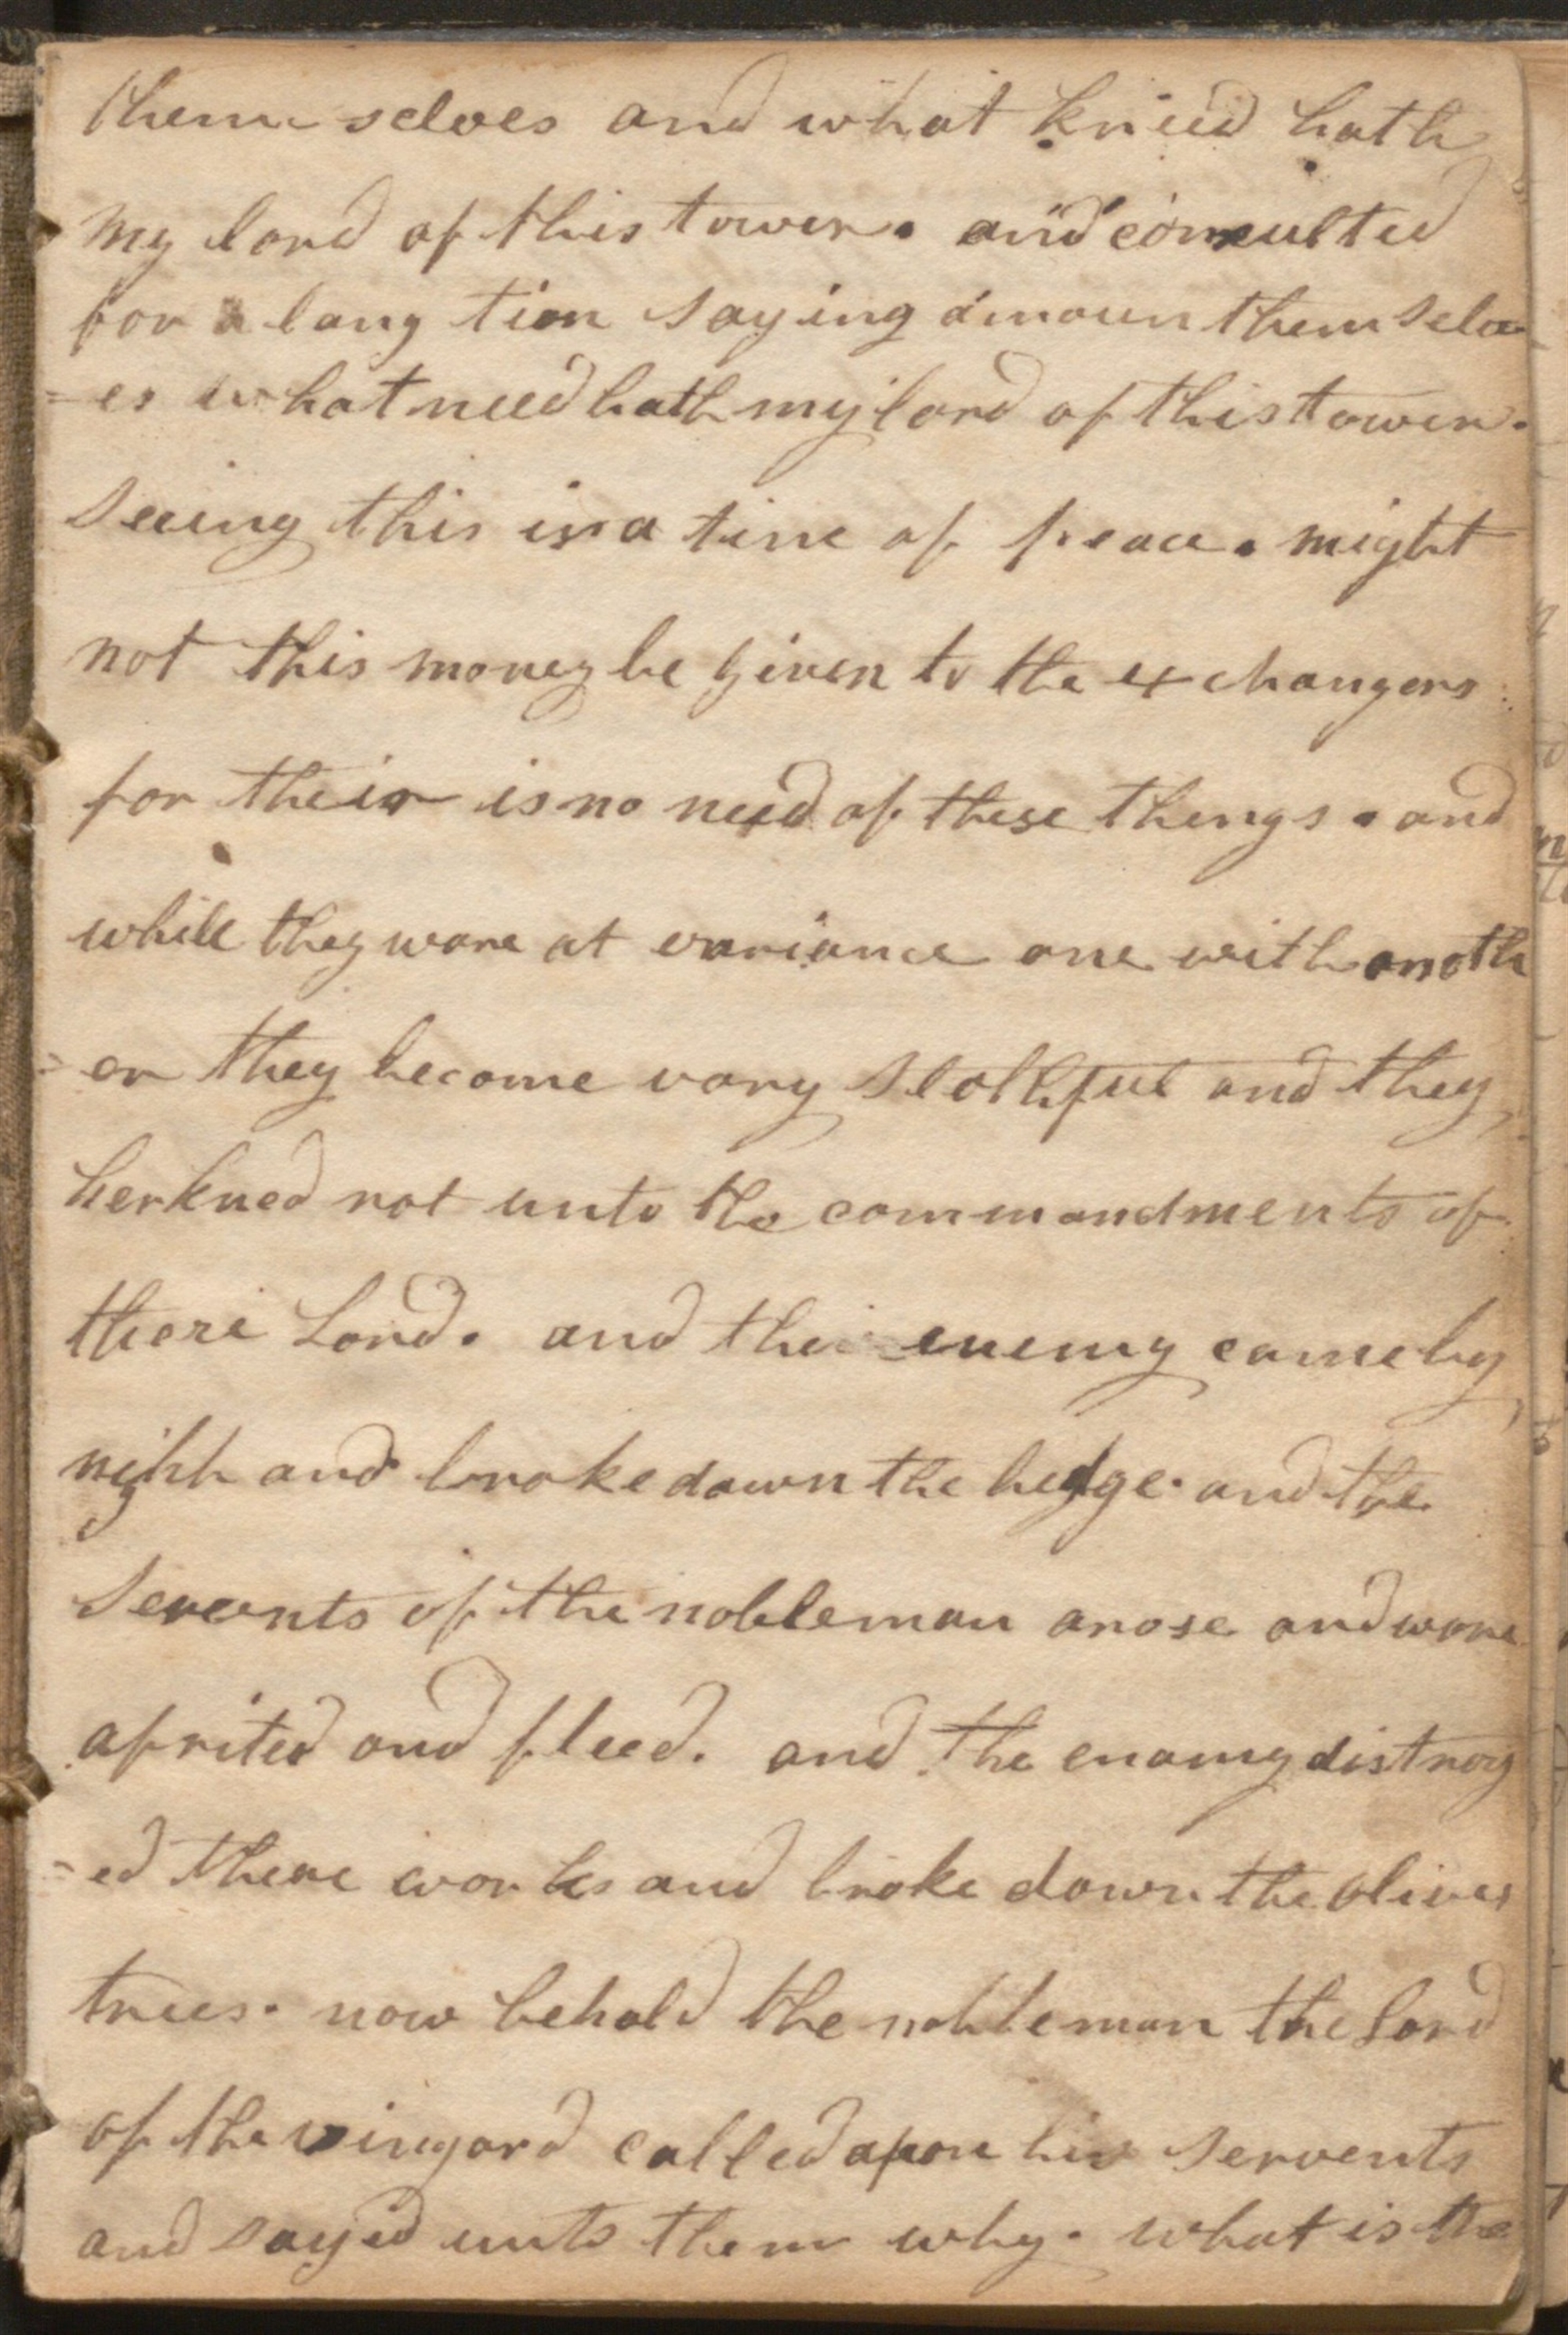 themselves and what kneed hath
my lord of this tower. and consulted
for a long tion saying amoun themselv
=es what need hath my lord of this tower.
seeing this is a time of peace. might
not this money be given to the exchangers
for their is no need of these things. and
while they ware at variance one with anoth
=er they become vary slothful and they
herkned not unto the commandments of
there Lord. and the enemy came by
night and broke down the hedge. and the
servents of the nobleman arose and ware
afrited and fleed. and the enamy distroy
=ed there works and broke down the olives
trees. now behold the nobleman the Lord
of the vinyard called apon his servents
and sayed unto them why. what is the